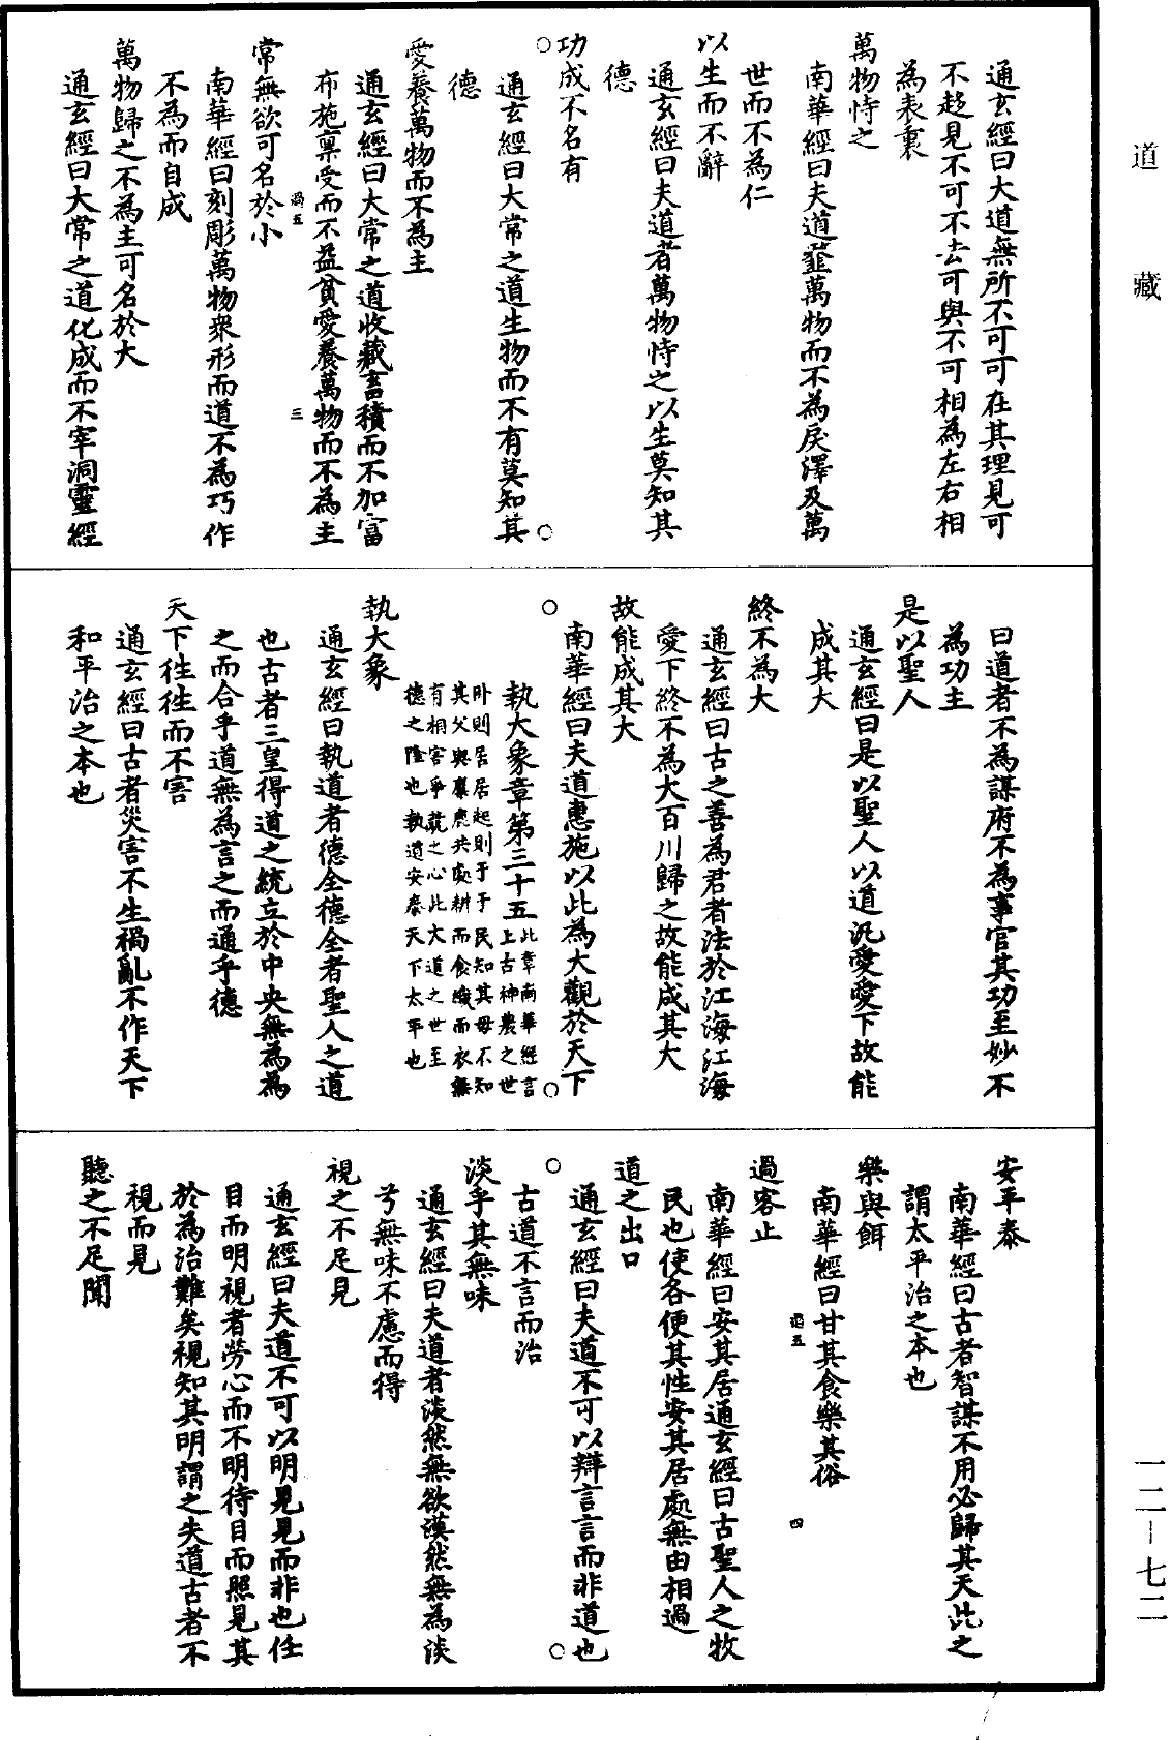 道藏
通玄經曰大道無所不可可在其理見可
不趍見不可不去可與不可相為左右相
為表裏
萬物恃之
南華經曰夫道韲萬物而不為戾澤及萬
世而不為仁
以生而不辭
通玄經曰夫道者萬物恃之以生莫知其
德
功成不名有
通玄經曰大常之道生物而不有莫知其
德
愛養萬物而不為主
通玄經曰大常之道收藏畜積而不加富
布施禀受而不益貧愛養萬物而不為主
過五 三
常無欲可名於小
南華經曰刻彫萬物衆形而道不為巧作
不為而自成
萬物歸之不為主可名於大
通玄經曰大常之道化成而不宰洞靈經
曰道者不為謀府不為事官其功至妙不
為功主
是以聖人
通玄經曰是以聖人以道汎愛愛下故能
成其大
終不為大
通玄經曰古之善為君者法於江海江海
愛下終不為大百川歸之故能成其大
故能成其大
南華經曰夫道惠施以此為大觀於天下
執大象章第三十五
此章南華經言
上古神農之世
卧則居居起則于于民知其母不知
其父與麋鹿共處耕而食織而衣無
有相害爭競之心此大道之世至
德之隆也執道安泰天下太平也
執大象
通玄經曰執道者德全德全者聖人之道
也古者三皇得道之統立於中央無為為
之而合乎道無為言之而通乎德
天下徃徃而不害
通玄經曰古者災害不生禍亂不作天下
和平治之本也
安平泰
南華經曰古者智謀不用必歸其天此之
謂太平治之本也
樂與餌
南華經曰甘其食樂其俗
過五 四
過客止
南華經曰安其居通玄經曰古聖人之牧
民也使各便其性安其居處無由相過
道之出口
通玄經曰夫道不可以辯言言而非道也
古道不言而治
淡乎其無味
通玄經曰夫道者淡然無欲漠然無為淡
兮無味不慮而得
視之不足見
通玄經曰夫道不可以明見見而非也任
目而明視者勞心而不明待目而照見其
於為治難矣視知其明謂之失道古者不
視而見
聽之不足聞
一二—七二